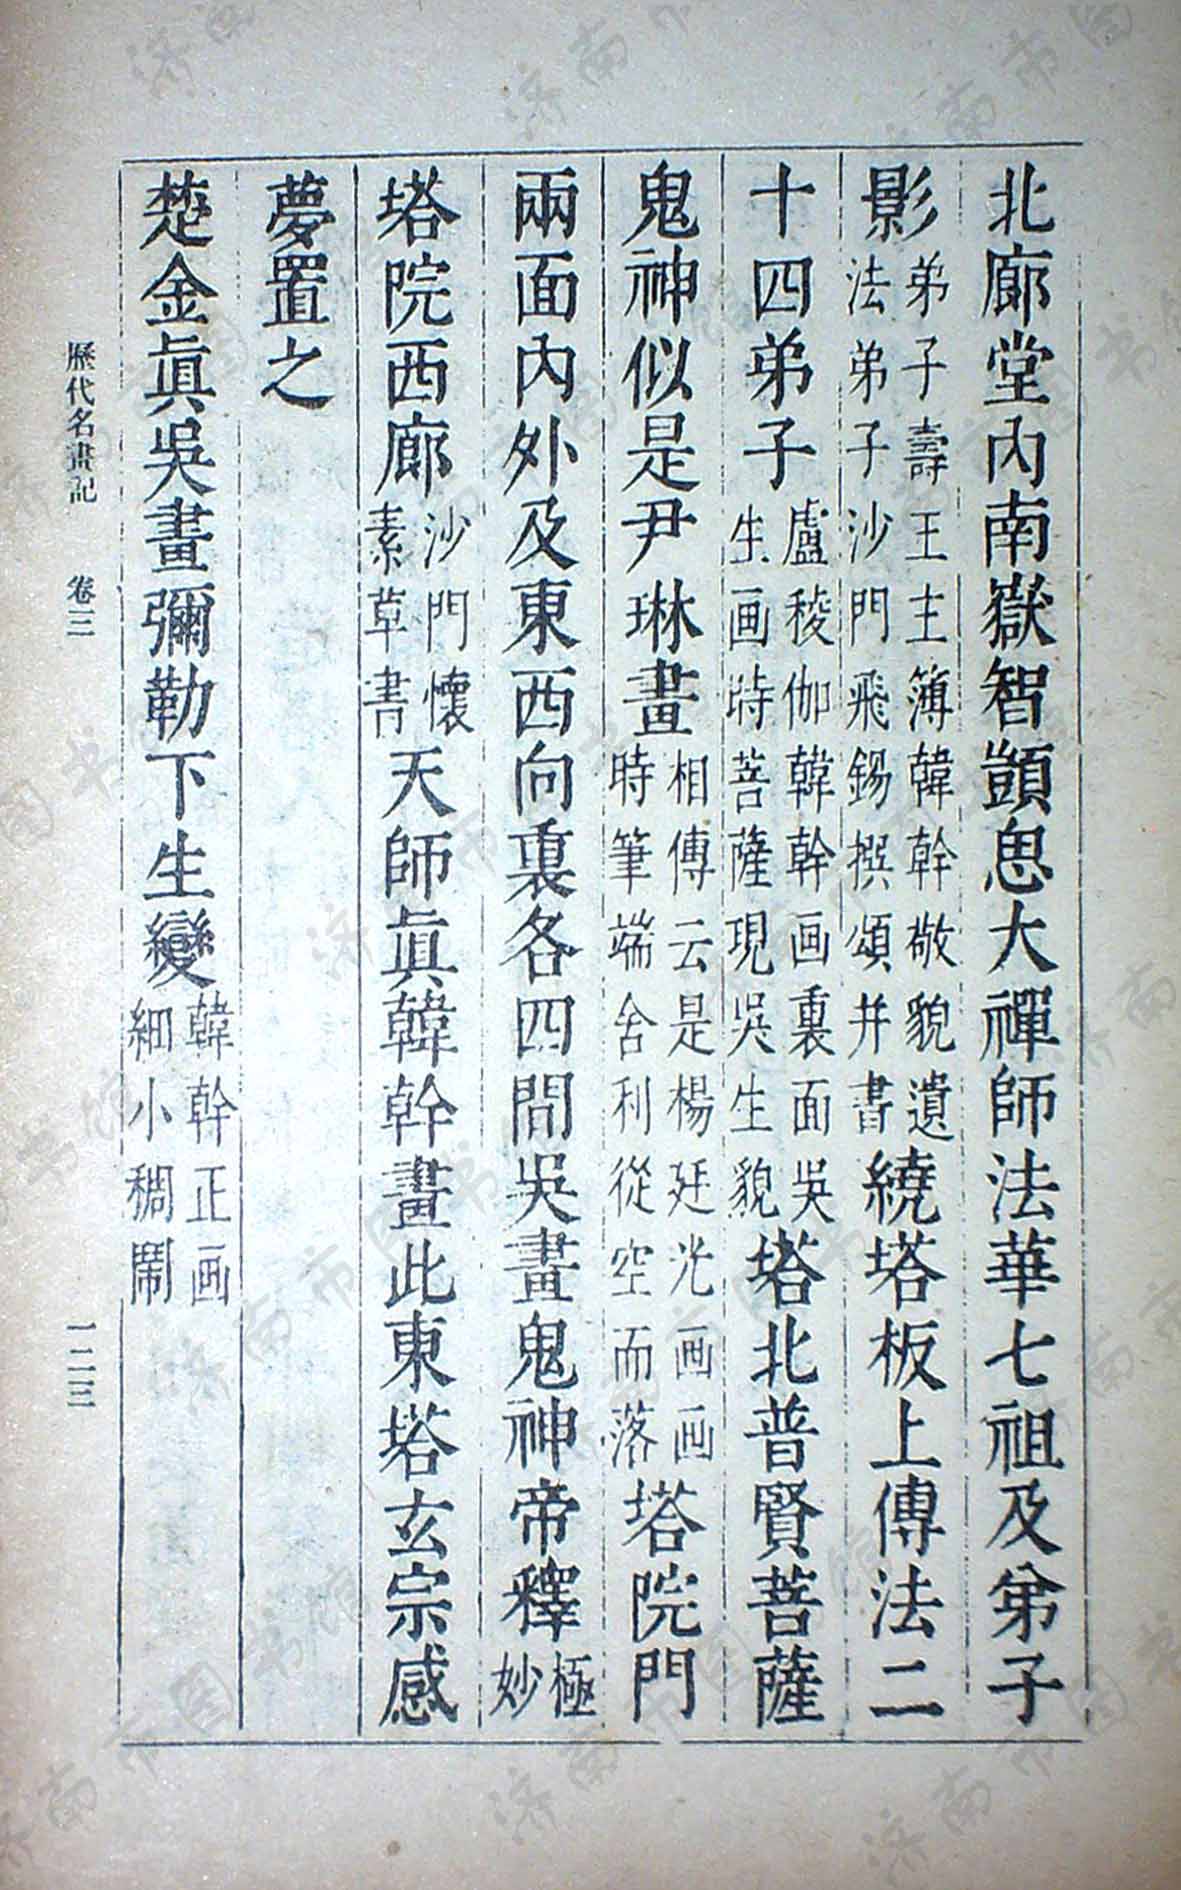 北廊堂內南嶽智顗思大禪師法華七祖及弟子
影弟子壽王主簿韓幹敬貌遺法弟子沙門飛錫撰頌并書繞塔板上傳法二
十四弟子盧稜伽韓幹画裏面吳生画時菩薩現吳生貌塔北普賢菩薩
鬼神似是尹琳畫相傳云是楊廷光画画時筆端舍利從空而落塔院門
兩面內外及東西向裏各四間吳畫鬼神帝釋極妙
塔院西廊沙門懷素草書天師眞韓幹畫此東塔玄宗感
夢置之
楚金眞吳畫彌勒下生變韓幹正画細小稠鬧
歷代名畫記 卷三 一二三
济南市图书馆